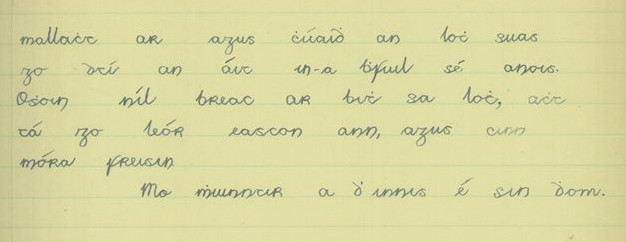 mallaċt ar agus ċúaiḋ an loċ suas
go dtí an áit in-a ḃfuil sé anois.
Oṡoin níl breac ar biṫ sa loċ, aċt
tá go leór eascon ann, agus cinn
móra freisin
Mo ṁuinntir a d'innis é sin dom.